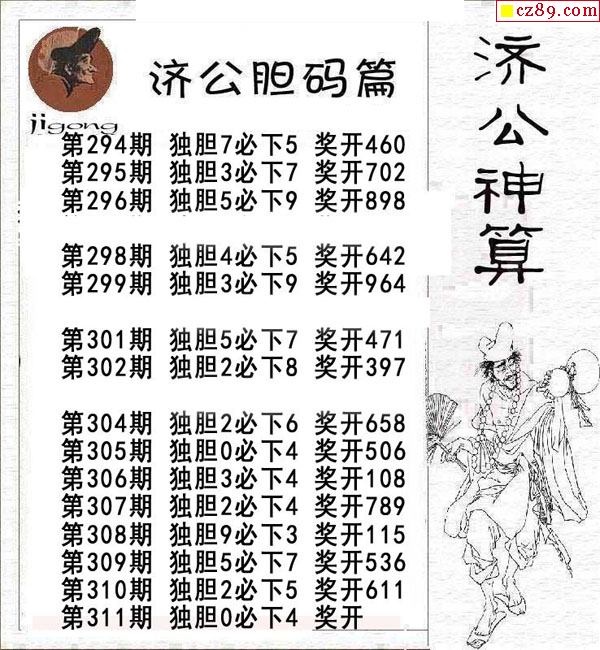 cz89.com
济公胆码篇
jigong
第294期 独胆7必下5 奖开460
第295期 独胆3必下7 奖开702
第296期 独胆5必下9 奖开898
第298期 独胆4必下5 奖开642
第299期 独胆3必下9 奖开964
第301期 独胆5必下7 奖开471
第302期 独胆2必下8 奖开397
第304期 独胆2必下6 奖开658
第305期 独胆0必下4 奖开506
第306期 独胆3必下4 奖开108
第307期 独胆2必下4 奖开789
第308期 独胆9必下3 奖开115
第309期 独胆5必下7 奖开536
第310期 独胆2必下5 奖开611
第311期 独胆0必下4 奖开
济公神算